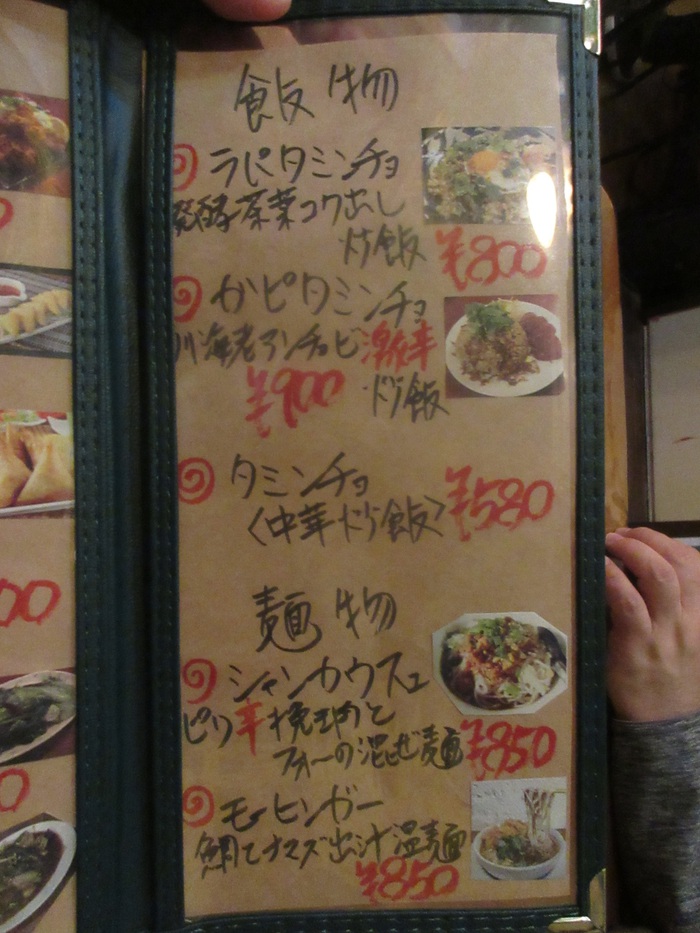 飯物
ラピタミンチョ
発酵茶葉コク出し
炒飯
¥800
かピタミンチョ
川海老アンチョビ激辛
¥900
炒飯
タミンチョ
〈中華炒飯〉
¥580
麺物
シャンカウスェ
ピリ辛挽肉と
フォーの混ぜ麺
¥850
モーヒンガー
鯛てナマズ出汁温麺
¥850
00